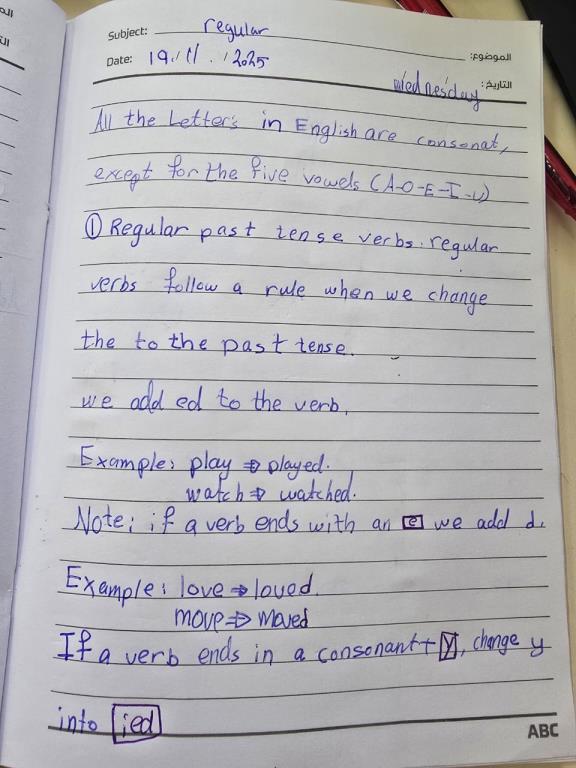 Subject: regular
الموضوع:
Date: 19 / 11 / 2025
التاريخ:
Wednesday
All the Letters in English are consonat,
except for the five vowels (A-O-E-I-U)
① Regular past tense verbs. regular
verbs follow a rule when we change
the to the past tense.
we add ed to the verb.
Example: play ⇒ played.
watch ⇒ watched.
Note: if a verb ends with an e we add d.
Example: love ⇒ loved.
move ⇒ moved
If a verb ends in a consonant + y, change y
into ied
ABC